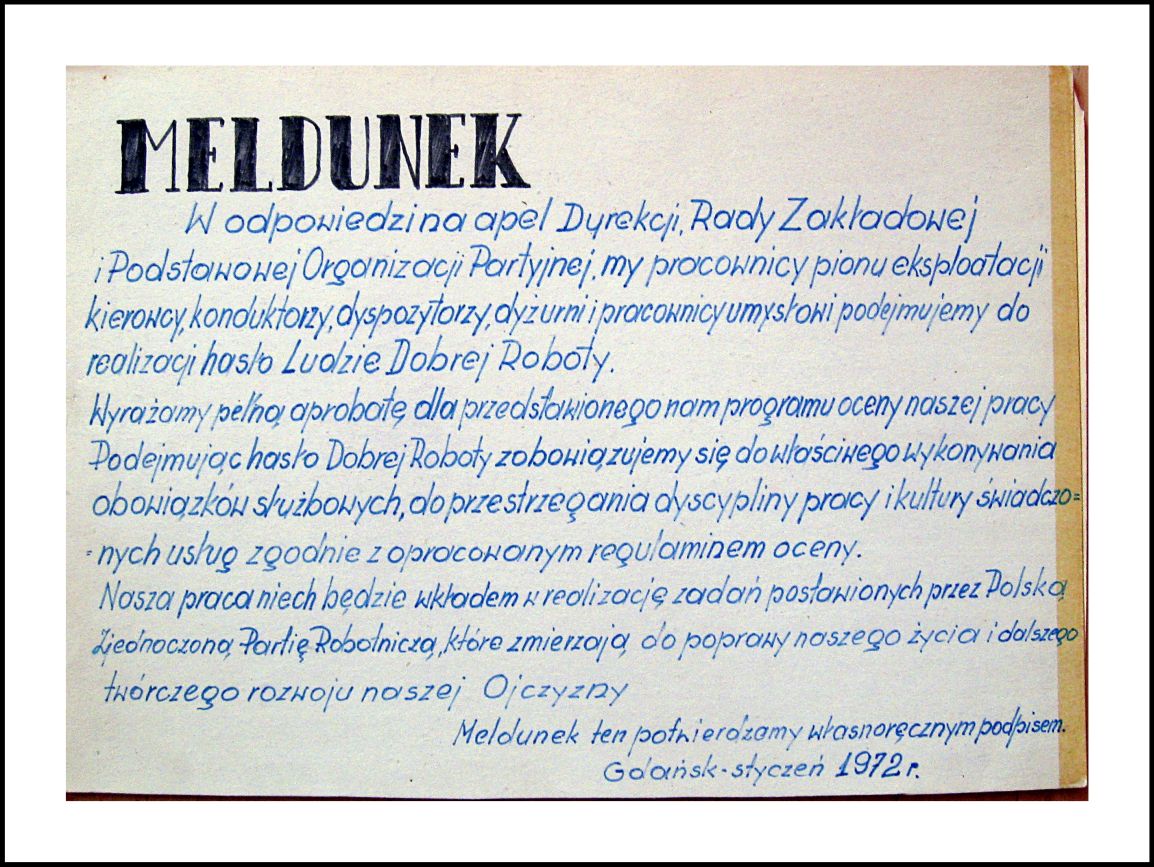 MELDUNEK
W odpowiedzi na apel Dyrekcji, Rady Zakładowej
i Podstawowej Organizacji Partyjnej, my pracownicy pionu eksploatacji
kierowcy, konduktorzy, dyspozytorzy, dyżurni i pracownicy umysłowi podejmujemy do
realizacji hasło Ludzie Dobrej Roboty.
Wyrażamy pełną aprobatę dla przedstawionego nam programu oceny naszej pracy
Podejmując hasło Dobrej Roboty zobowiązujemy się do właściwego wykonywania
obowiązków służbowych, do przestrzegania dyscypliny pracy i kultury świadczo=
=nych usług zgodnie z opracowanym regulaminem oceny.
Nasza praca niech będzie wkładem w realizację zadań postawionych przez Polską
Zjednoczoną Partię Robotniczą, które zmierzają do poprawy naszego życia i dalszego
twórczego rozwoju naszej Ojczyzny
Meldunek ten potwierdzamy własnoręcznym podpisem.
Gdańsk-styczeń 1972 r.